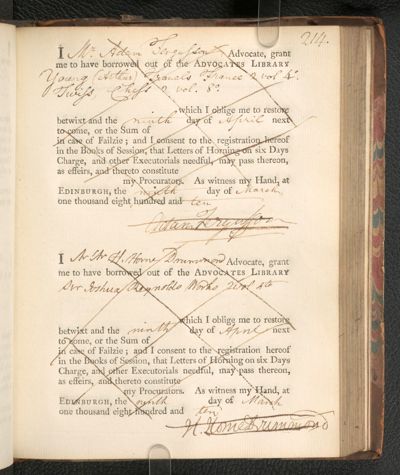 214.
I Mr. Adam Fergusson Advocate, grant
me to have borrowed out of the ADVOCATES LIBRARY
Young (Arthur) Travels France 2 vol 4o.
Twiss Chess 2 vol. 8o.
, which I oblige me to restore
betwixt and the ninth day of April next
to come, or the Sum of
in case of Failzie; and I consent to the registration hereof
in the Books of Session, that Letters of Horning on six Days
Charge, and other Executorials needful, may pass thereon,
as effeirs, and thereto constitute
my Procurators. As witness my Hand, at
EDINBURGH, the ninth day of March
one thousand eight hundred and ten
Adam Fergusson
I Mr H. Home Drummond Advocate, grant
me to have borrowed out of the ADVOCATES LIBRARY
Sir Joshua Reynolds Works 2 vol 4to
which I oblige me to restore
betwixt and the ninth day of April next
to come, or the Sum of
in case of Failzie; and I consent to the registration hereof
in the Books of Session, that Letters of Horning on six Days
Charge, and other Executorials needful, may pass thereon,
as effeirs, and thereto constitute
my Procurators. As witness my Hand, at
EDINBURGH, the ninth day of March
one thousand eight hundred and ten
H. Home Drummond